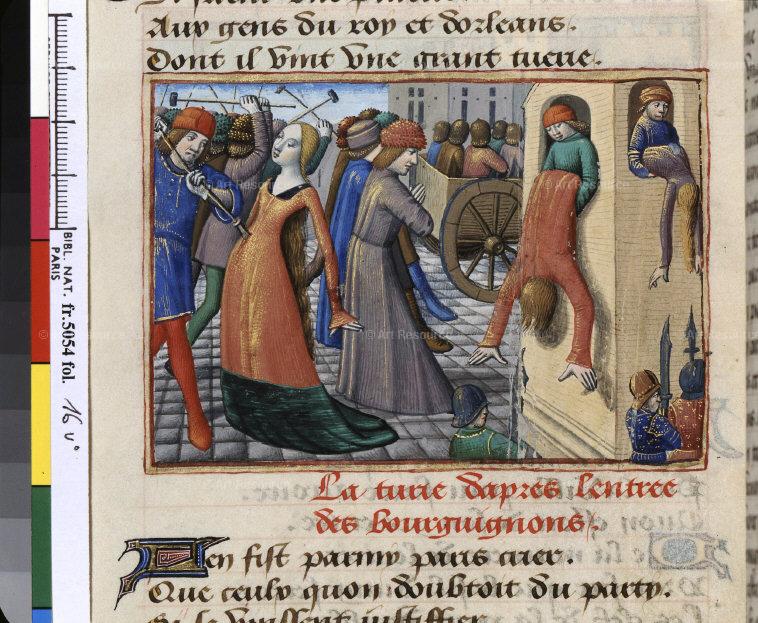 Aux gens du roy et dorleans.
Dont il vint une grant tuerie.
La turie dapres lentree
des bourguignons.
en fist parmy paris crier.
Que ceulx quon doubtoit du party.
BIBL. NAT. fr. 5054 fol. 16 v°
PARIS
© Art Resource